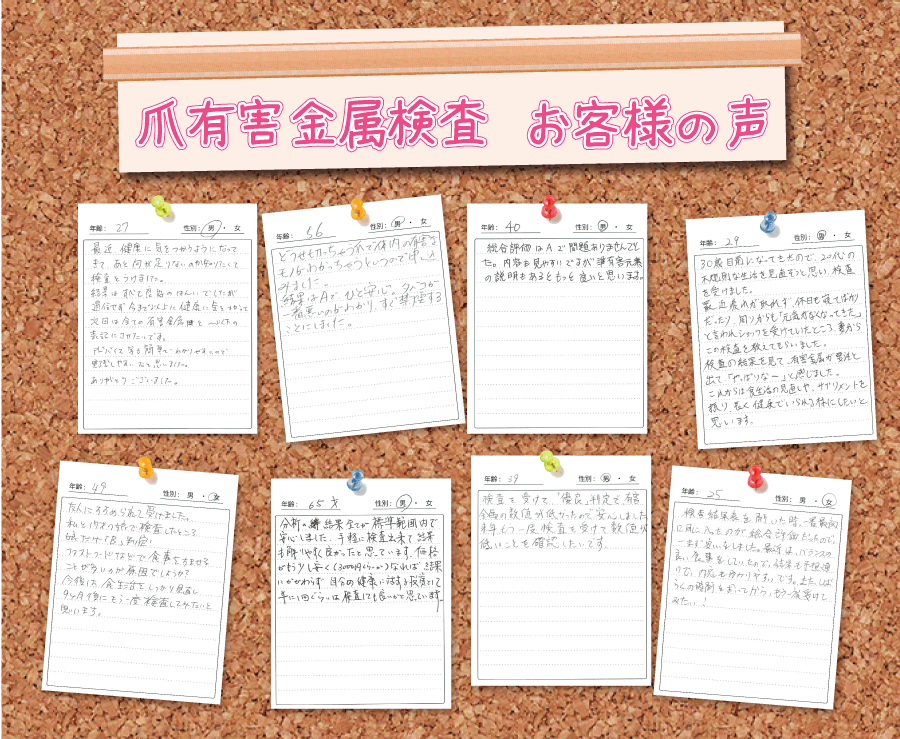 爪有害金属検査 お客様の声
年齢: 27 性別: 男 ・ 女
最近 健康に気をつかうようになって
きて あと何が足りないのか知りたくて
検査をうけました。
結果は
今まで以上に健康に気をつかって
次回は全ての有害金属
表記にさせたいです。
アドバイス等も簡単でわかりやすいので
思いました。
ありがとうございました。
年齢: 36 性別: 男 ・ 女
体内の有害な
モノがわかっちゃうっていうので申し込
みました。
結果はAで、ひと安心。タバコが
一番悪いのがわかり、すぐ禁煙する
ことにしました。
年齢: 40 性別: 男 ・ 女
総合評価はAで問題ありませんでし
た。内容も見やすいですが準有害元素
の説明もあるともっと良いと思います。
年齢: 29 性別: 男 ・ 女
30歳目前になってきたので、20代の
不規則な生活を見直そうと思い、検査
を受けました。
最近疲れが取れず、休日も寝てばかり
だったり、周りからも「元気がなくなってきた」
と言われショックを受けていたところ、妻から
この検査を教えてもらいました。
検査の結果を見て、有害金属が要注と
出て「やっぱりな〜」と感じました。
これからは食生活の見直しや、サプリメントを
摂り、長く健康でいられる様にしたいと
思います。
年齢: 49 性別: 男 ・ 女
友人にすすめられて受けました。
私と19才の娘で検査したところ
娘だけ「B」判定!
ファストフードなどで食事をすませる
ことが多いのが原因でしょうか?
今後は、食生活をしっかり見直し
9ヶ月後にもう一度検査してみたいと
思います。
年齢: 65才 性別: 男 ・ 女
分析の結果全てが標準範囲内で
安心しました。手軽に検査出来て結果
も解りやすく良かったと思っています。価格
がもう少し安く(3000円くらいか)なれば結果
にかかわらず自分の健康に対する投資として
年に1回ぐらいは検査しても良いかと思っています。
年齢: 39 性別: 男 ・ 女
検査を受けて、「優良」判定で、有害
金属の数値が低かったので、安心しました。
半年くらいで一度検査を受けて数値が
低いことを確認したいです。
年齢: 25 性別: 男 ・ 女
検査結果表を開いた時、一番最初
に目に入ったのが総合評価だったので、
一まず安心をしました。最近は、バランスの
良い食事をしていたので、結果も予想通
りで、内容も分かりやすいです。またしば
らく時間をおいてから、もう一度受けて
みたい!